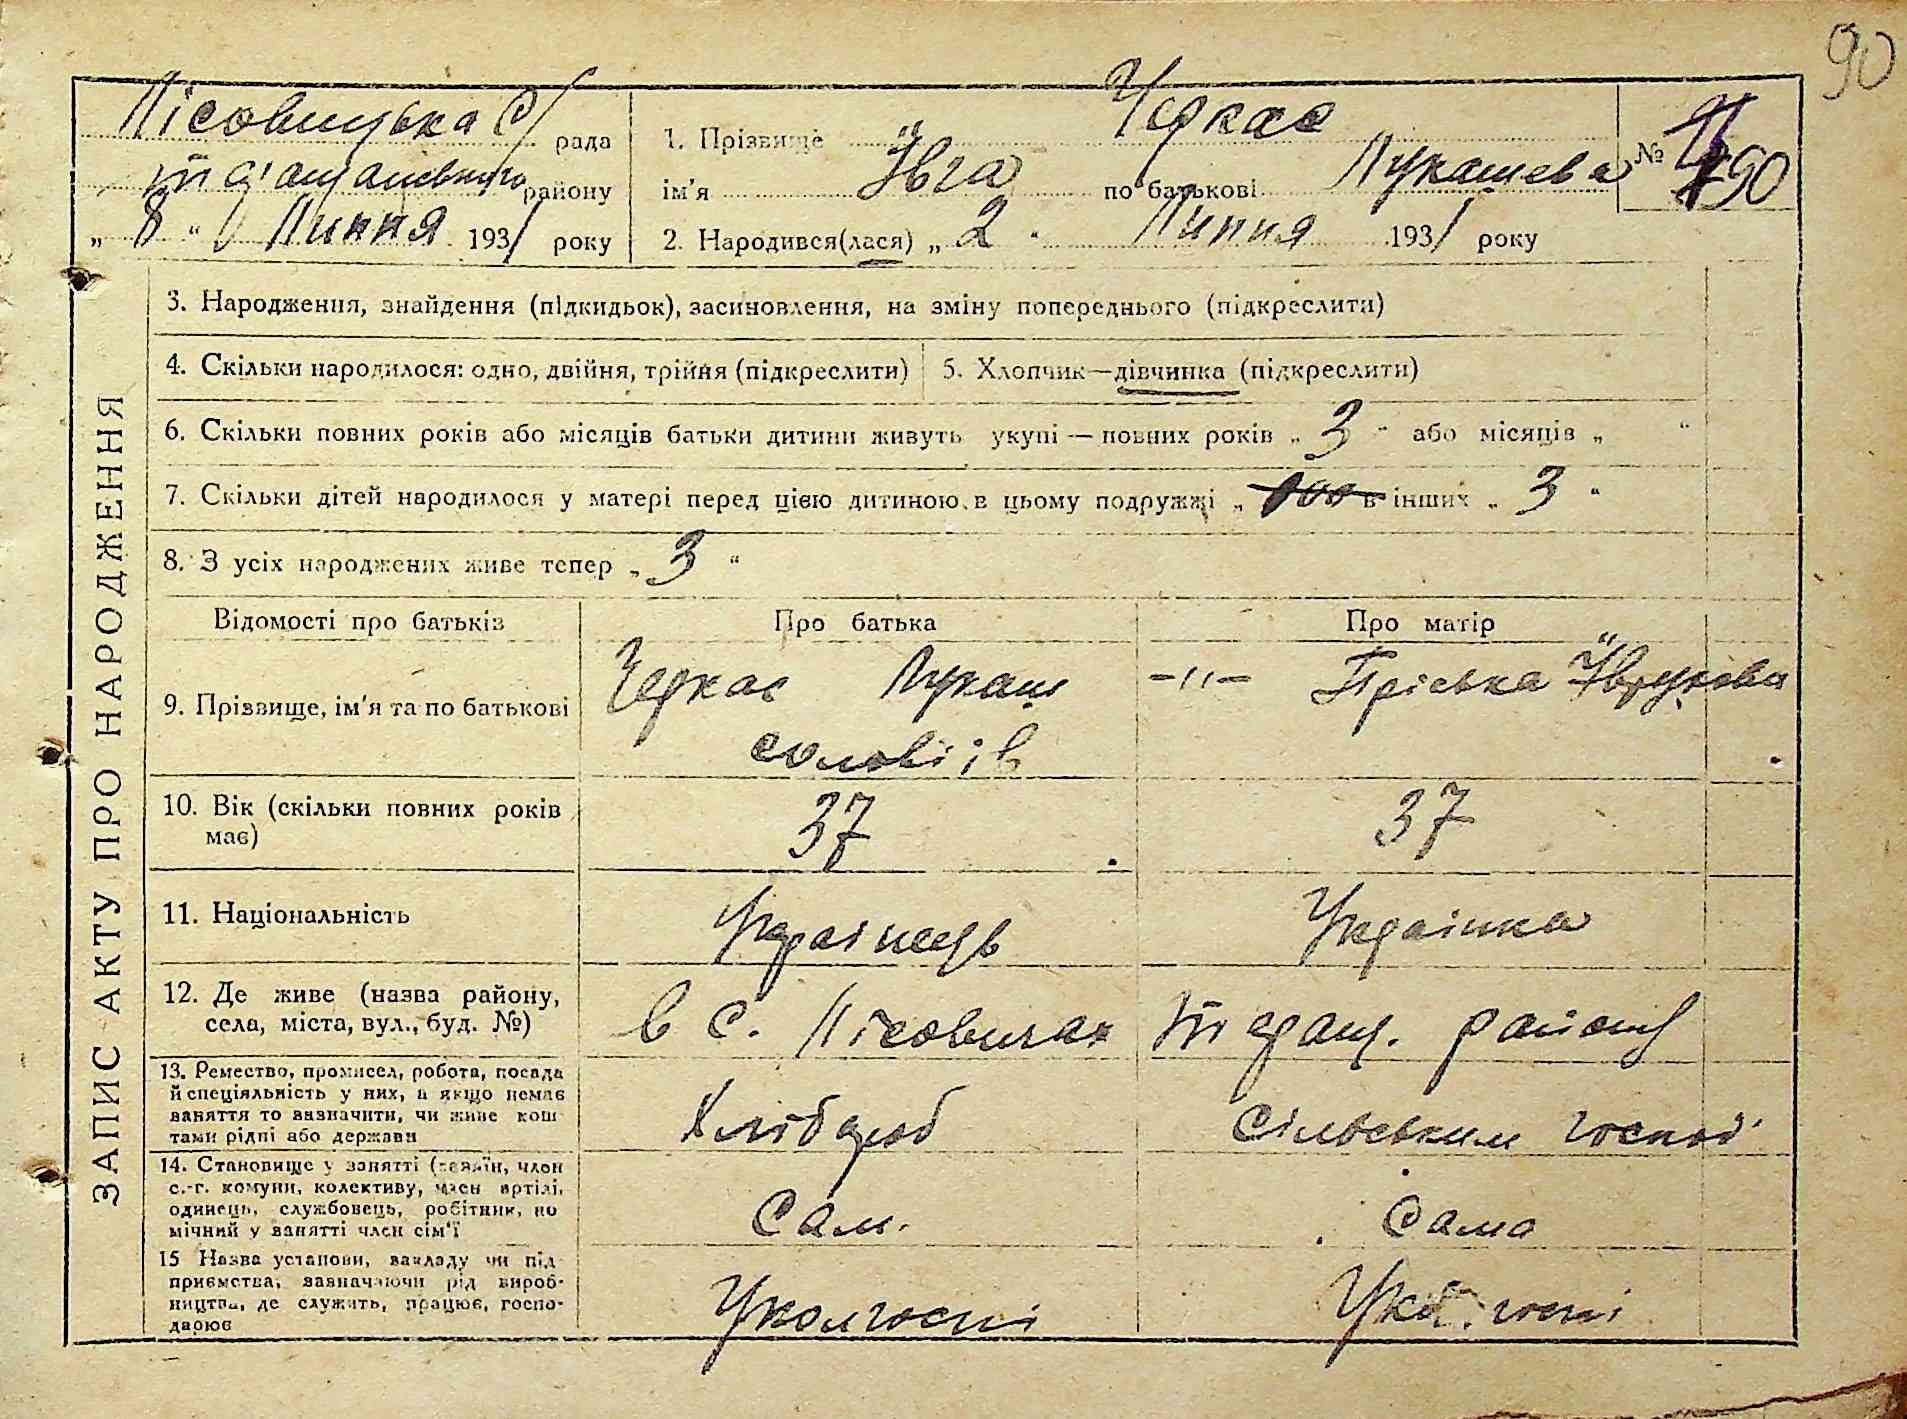 90
Лісовицька С/ рада
району
„ 8 “ Липня 1931 року
1. Прізвище Черкас
ім'я Ївга по батькові Лукашева
№ 90
2. Народився(лася) „ 2 “ Липня 1931 року
ЗАПИС АКТУ ПРО НАРОДЖЕННЯ
3. Народження, знайдення (підкидьок), засиновлення, на зміну попереднього (підкреслити)
4. Скільки народилося: одно, двійня, трійня (підкреслити)
5. Хлопчик—дівчинка (підкреслити)
6. Скільки повних років або місяців батьки дитини живуть укупі — повних років „ 3 “ або місяців „ “
7. Скільки дітей народилося у матері перед цією дитиною в цьому подружжі „ в інших „ 3 “
8. З усіх народжених живе тепер „ 3 “
Відомості про батьків
Про батька
Про матір
9. Прізвище, ім'я та по батькові
Черкас Лукаш
соловіів
-"- Пріська
10. Вік (скільки повних років
має)
37
37
11. Національність
Українець
Українка
12. Де живе (назва району,
села, міста, вул., буд. №)
в с. Лісовичах
району
13. Ремество, промисел, робота, посада
й спеціяльність у них, а якщо немає
заняття то зазначити, чи живе кош
тами рідні або держави
Хлібороб
сільським господ.
14. Становище у занятті (хазяїн, член
с.-г. комуни, колективу, член артілі,
одинець, службовець, робітник, по
мічний у занятті член сім'ї
Сам.
Сама
15 Назва установи, закладу чи під
приємства, зазначаючи рід вироб-
ництва, де служить, працює, госпо-
дарює
Уколгоспі
Укол.госпі